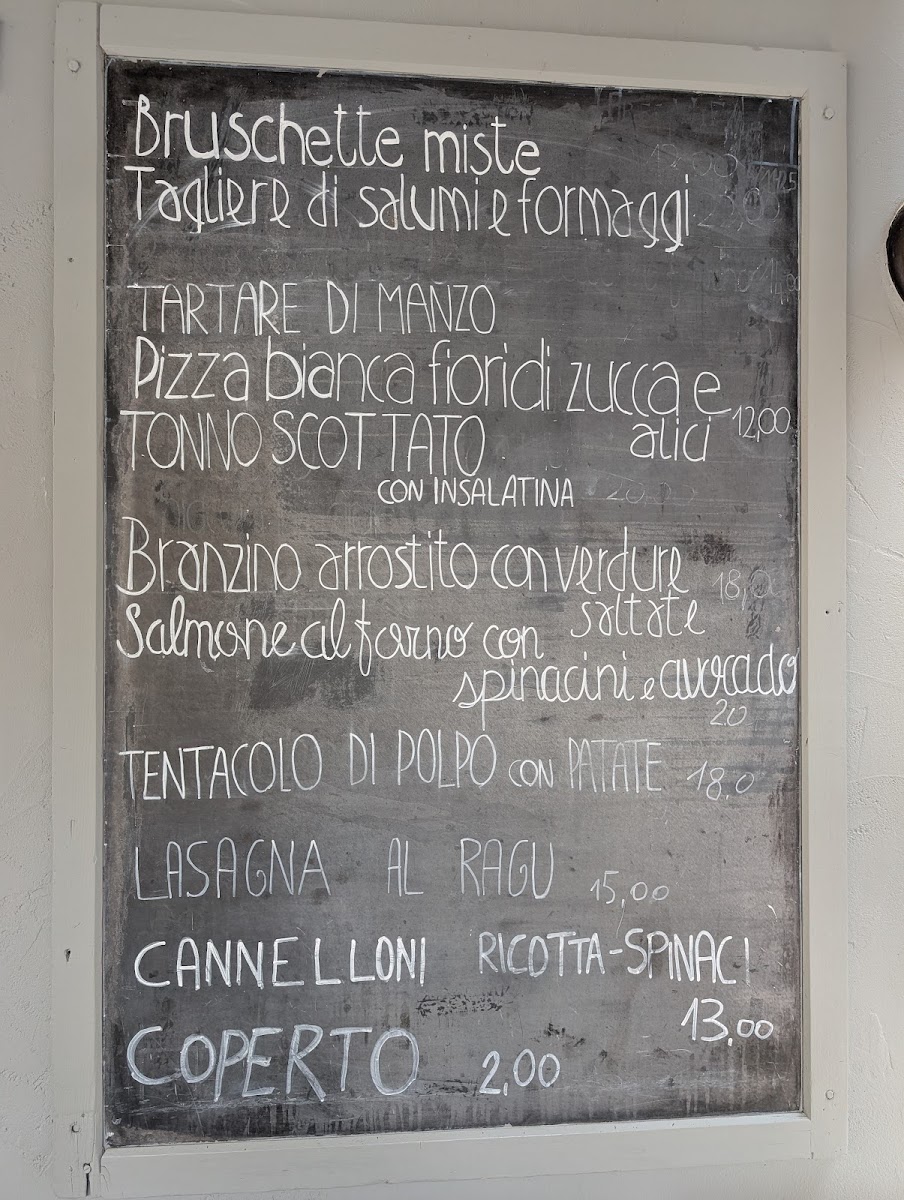 Bruschette miste
Tagliere di salumi e formaggi
TARTARE DI MANZO
Pizza bianca fiori di zucca e
alici 12,00
TONNO SCOTTATO
CON INSALATINA 20,00
Branzino arrostito con verdure
saltate 18,0
Salmone al forno con
spinacini e avocado
20
TENTACOLO DI POLPO CON PATATE 18,0
LASAGNA AL RAGU 15,00
CANNELLONI RICOTTA-SPINACI
13,00
COPERTO 2,00